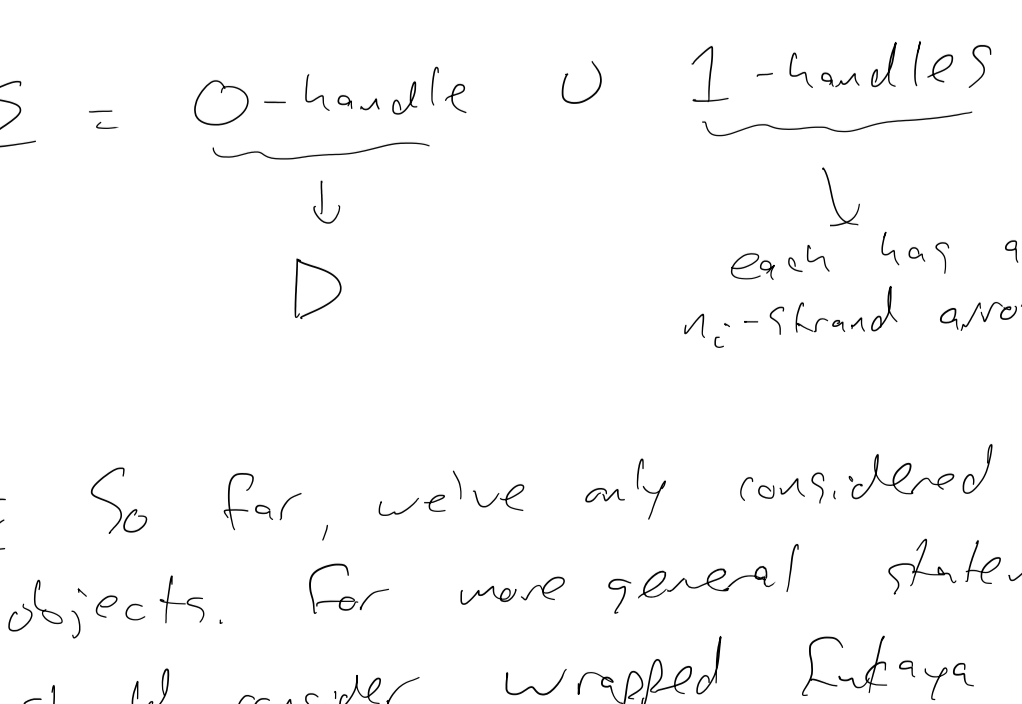 S = 0-handle ∪ 1-handles
↓ ↓
D each has a
nᵢ-strand
So far, we've only considered
objects. For more general
consider wrapped Fukaya